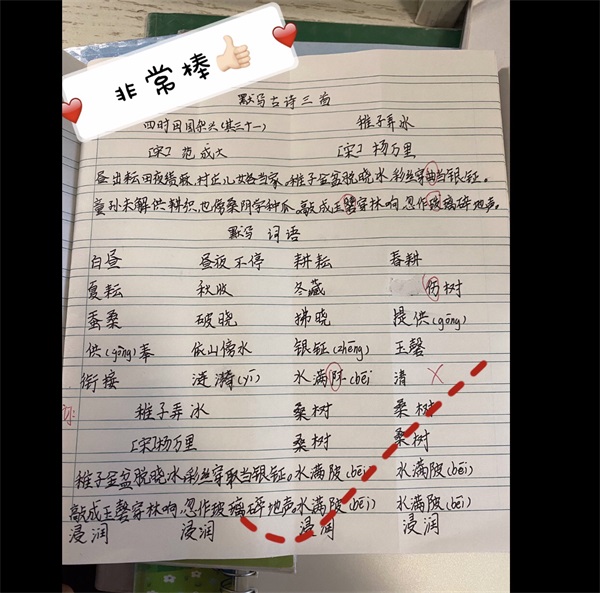 非常棒
默写古诗三首
四时田园杂兴(其三十一) 稚子弄水
[宋] 范成大 [宋] 杨万里
昼出耘田夜绩麻,村庄儿女各当家。稚子金盆脱晓水,彩丝穿曲当银钲。
童孙未解供耕织,也傍桑阴学种瓜。敲成玉磬穿林响,忽作玻璃碎地声。
默写 词语
白昼 昼夜不停 耕耘 春耕
复耘 秋收 冬藏 伤树
蚕桑 破晓 拂晓 提供(gōng)
供(gōng)奉 依山傍水 银钲(zhēng) 玉磬
衔接 涟漪(yī) 水满 (bēi
稚子弄冰 桑树 桑树
[宋]杨万里 桑树 桑树
稚子金盆脱晓水,彩丝穿取当银钲。水满陂(bēi) 水满陂(bēi)
敲成玉磬穿林响,忽作玻璃碎地声。水满陂(bēi) 水满陂(bēi)
浸润 浸润 浸润 浸润